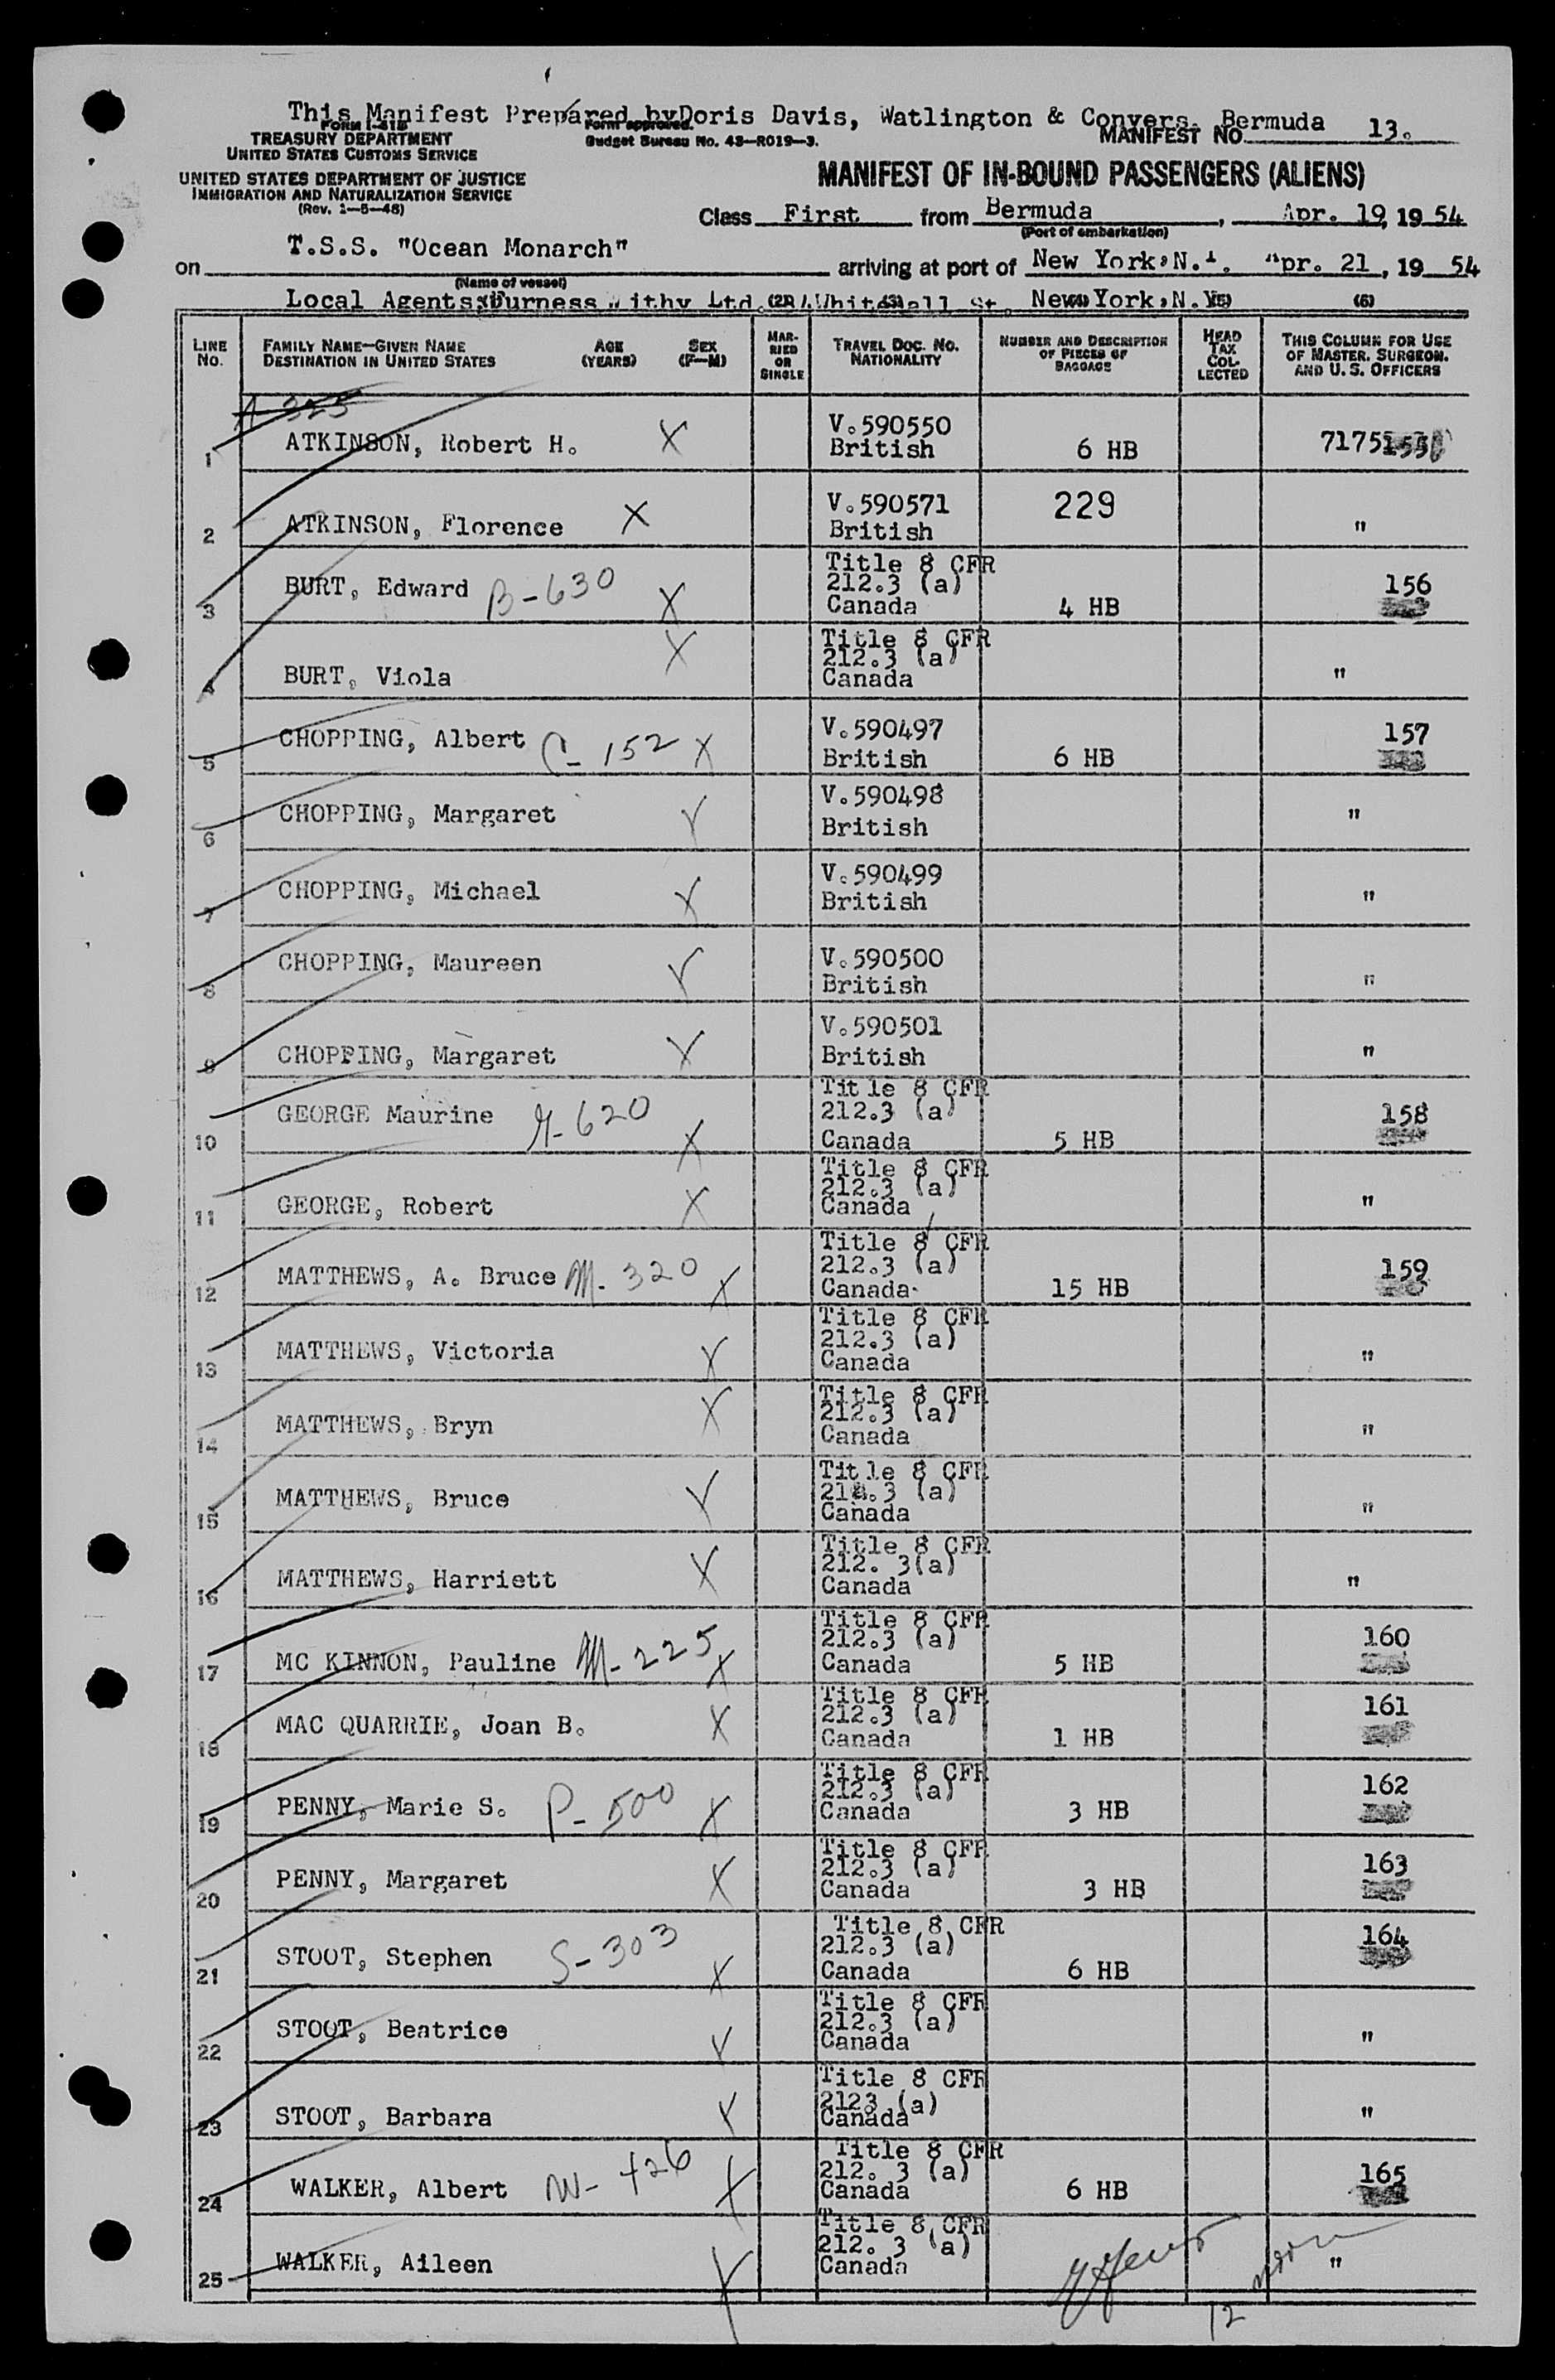 This Manifest Prepared by Doris Davis, Watlington & Conyers, Bermuda
FORM I-418
TREASURY DEPARTMENT
UNITED STATES CUSTOMS SERVICE
UNITED STATES DEPARTMENT OF JUSTICE
IMMIGRATION AND NATURALIZATION SERVICE
(Rev. 1-5-48)
Form approved.
Budget Bureau No. 43-R019-3.
MANIFEST NO. 13.
MANIFEST OF IN-BOUND PASSENGERS (ALIENS)
Class First from Bermuda, Apr. 19, 1954
(Port of embarkation)
on T.S.S. "Ocean Monarch" arriving at port of New York, N.Y. Apr. 21, 1954
(Name of vessel)
Local Agents: Furness Withy Ltd. Whitehall St. New York, N.Y.
(2) (3) (4) (5) (6)
LINE No. FAMILY NAME—GIVEN NAME DESTINATION IN UNITED STATES AGE (YEARS) SEX (F—M) MARRIED OR SINGLE TRAVEL DOC. NO. NATIONALITY NUMBER AND DESCRIPTION OF PIECES OF BAGGAGE HEAD TAX COLLECTED THIS COLUMN FOR USE OF MASTER, SURGEON, AND U. S. OFFICERS
A-325
1 ATKINSON, Robert H. X V.590550 British 6 HB 7175155
2 ATKINSON, Florence X V.590571 British 229 "
3 BURT, Edward B-630 X Title 8 CFR 212.3 (a) Canada 4 HB 156
4 BURT, Viola X Title 8 CFR 212.3 (a) Canada "
5 CHOPPING, Albert C-152 X V.590497 British 6 HB 157
6 CHOPPING, Margaret X V.590498 British "
7 CHOPPING, Michael X V.590499 British "
8 CHOPPING, Maureen X V.590500 British "
9 CHOPPING, Margaret X V.590501 British "
10 GEORGE Maurine G-620 X Title 8 CFR 212.3 (a) Canada 5 HB 158
11 GEORGE, Robert X Title 8 CFR 212.3 (a) Canada "
12 MATTHEWS, A. Bruce M-320 X Title 8 CFR 212.3 (a) Canada 15 HB 159
13 MATTHEWS, Victoria X Title 8 CFR 212.3 (a) Canada "
14 MATTHEWS, Bryn X Title 8 CFR 212.3 (a) Canada "
15 MATTHEWS, Bruce X Title 8 CFR 212.3 (a) Canada "
16 MATTHEWS, Harriett X Title 8 CFR 212. 3(a) Canada "
17 MC KINNON, Pauline M-225 X Title 8 CFR 212.3 (a) Canada 5 HB 160
18 MAC QUARRIE, Joan B. X Title 8 CFR 212.3 (a) Canada 1 HB 161
19 PENNY, Marie S. P-500 X Title 8 CFR 212.3 (a) Canada 3 HB 162
20 PENNY, Margaret X Title 8 CFR 212.3 (a) Canada 3 HB 163
21 STOOT, Stephen S-303 X Title 8 CFR 212.3 (a) Canada 6 HB 164
22 STOOT, Beatrice X Title 8 CFR 212.3 (a) Canada "
23 STOOT, Barbara X Title 8 CFR 2123 (a) Canada "
24 WALKER, Albert W-426 X Title 8 CFR 212. 3 (a) Canada 6 HB 165
25 WALKER, Aileen X Title 8 CFR 212. 3 (a) Canada "
12 noon